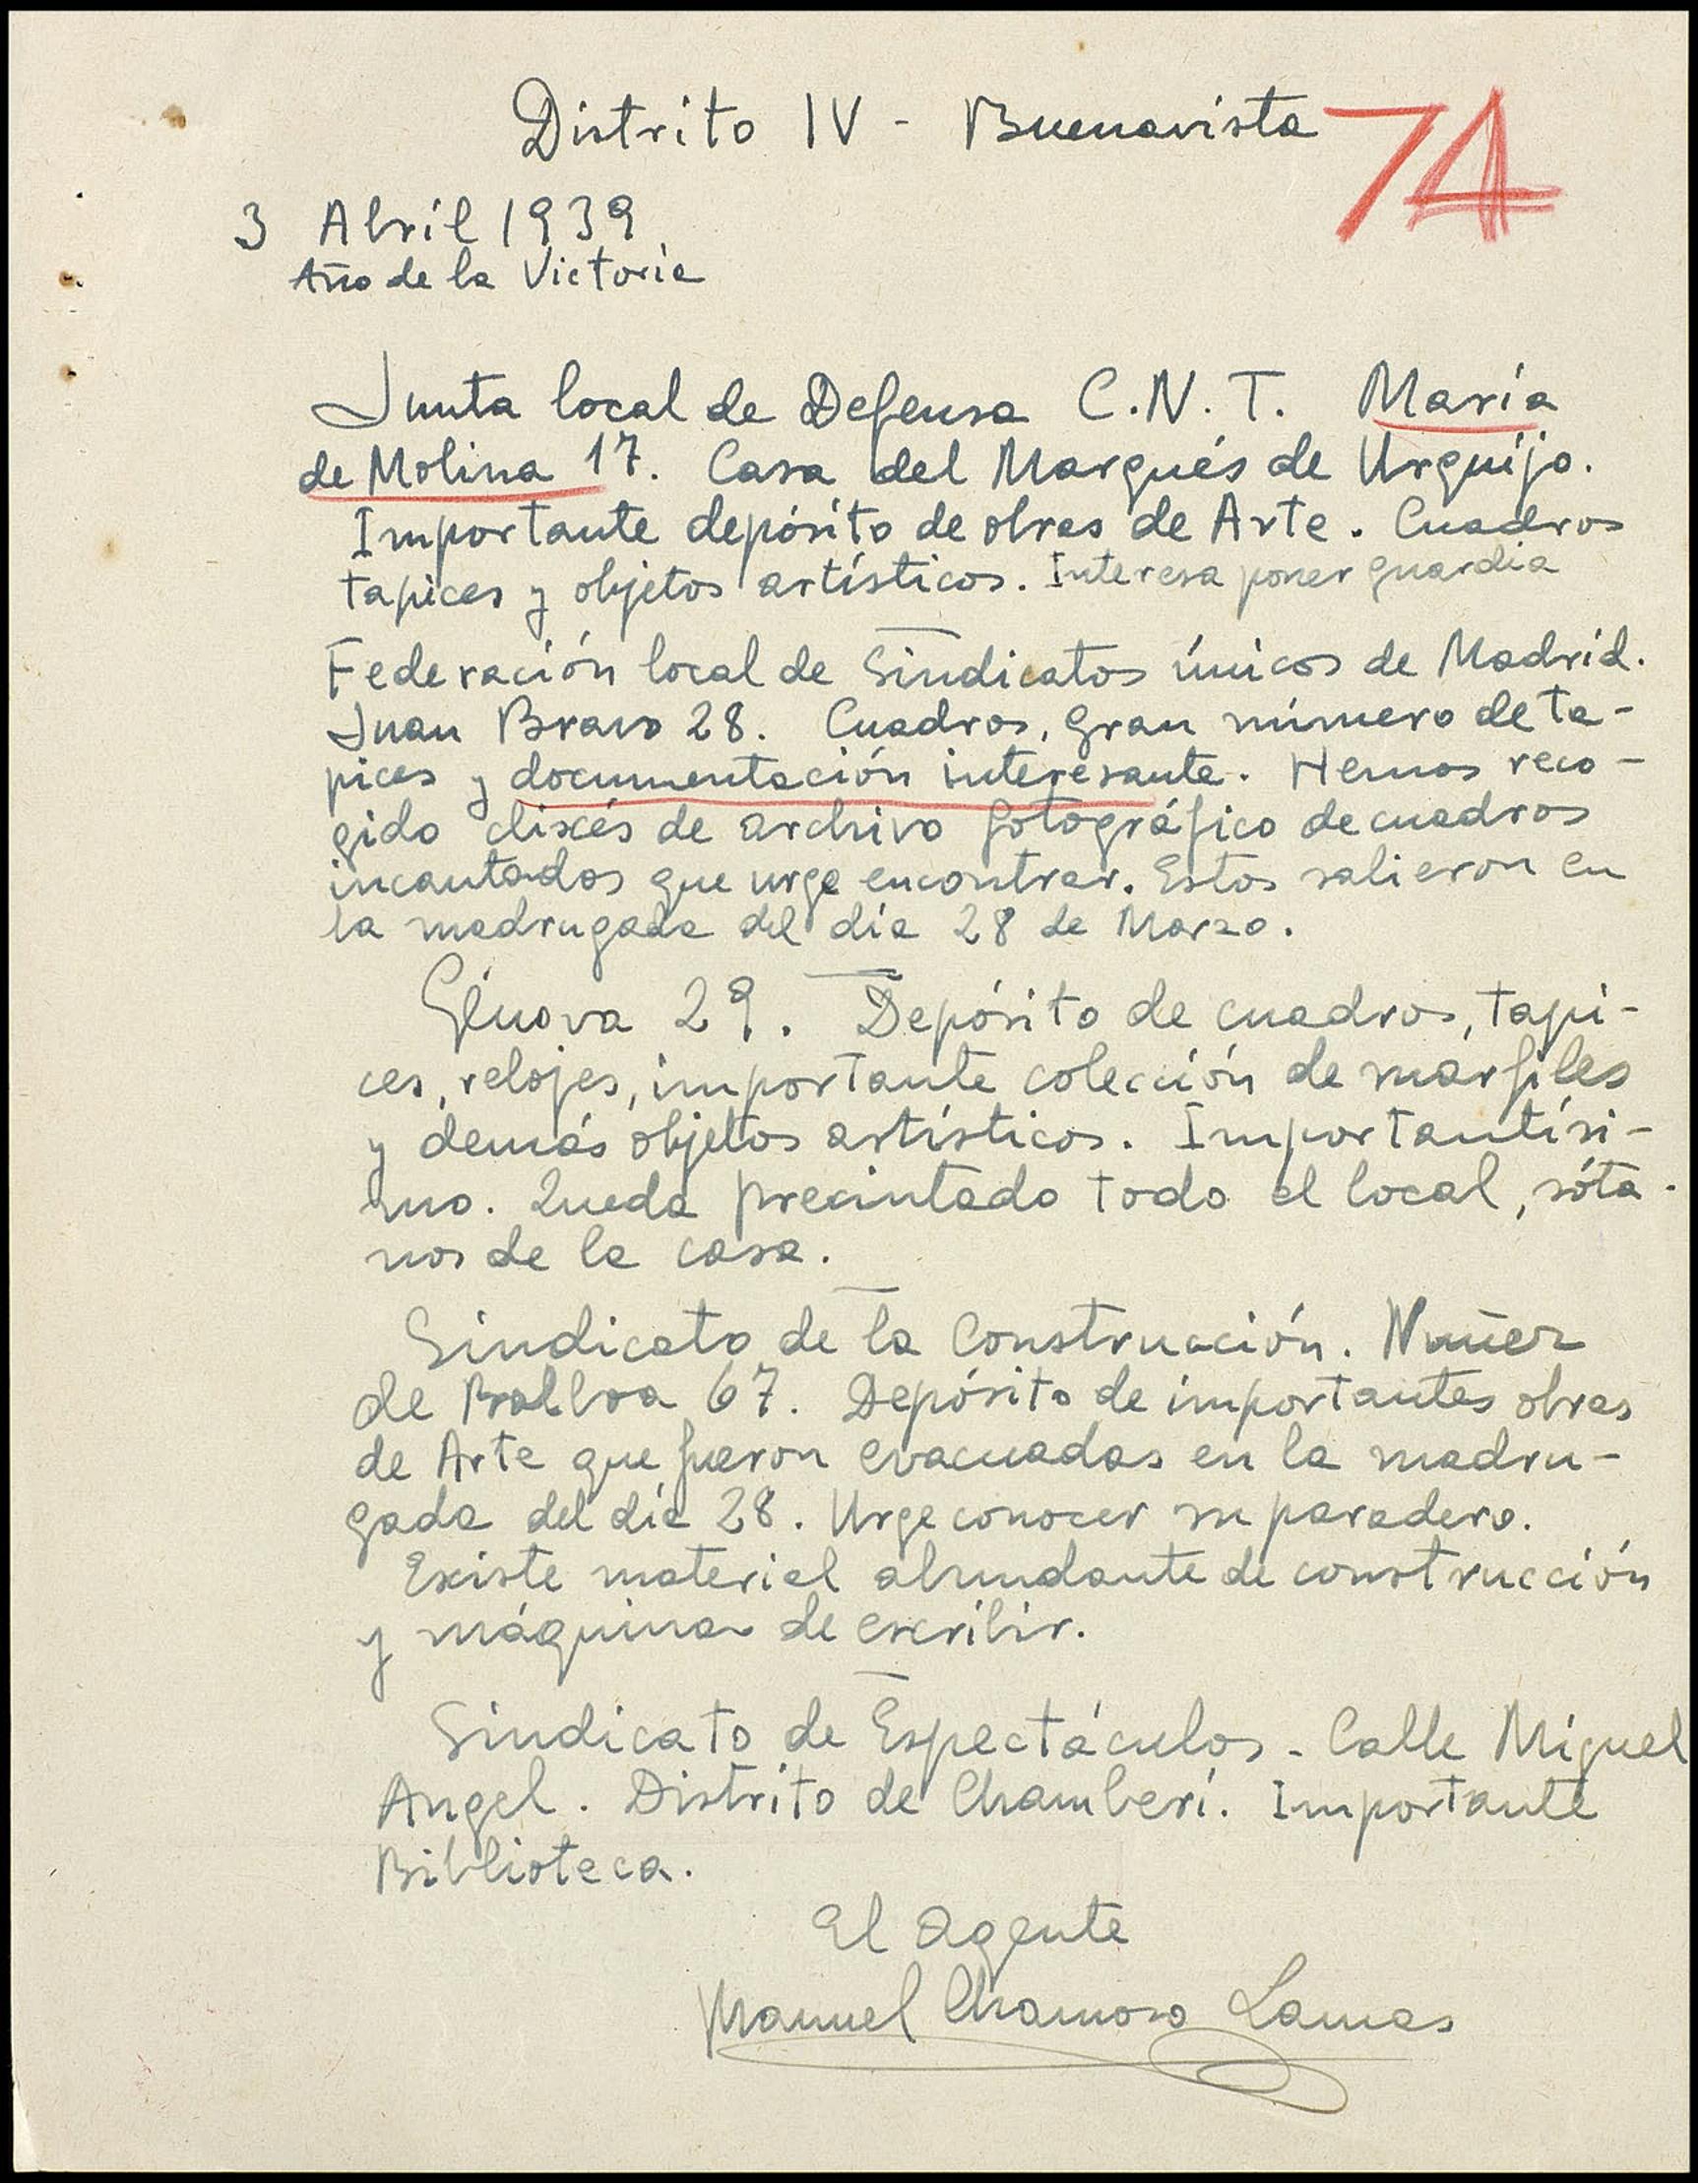 Distrito IV - Buenavista 74
3 Abril 1939
Año de la Victoria
Junta local de Defensa C.N.T. María
de Molina 17. Casa del Marqués de Urquijo.
Importante depósito de obras de Arte. Cuadros
tapices y objetos artísticos. Interesa poner guardia
Federación local de Sindicatos únicos de Madrid.
Juan Bravo 28. Cuadros, gran número de ta-
pices y documentación interesante. Hemos reco-
gido clixés de archivo fotográfico de cuadros
incautados que urge encontrar. Estos salieron en
la madrugada del día 28 de Marzo.
Génova 29. Depósito de cuadros, tapi-
ces, relojes, importante colección de márfiles
y demás objetos artísticos. Importantísi-
mo. Queda precintado todo el local, sóta-
nos de la casa.
Sindicato de la Construcción. Nuñez
de Balboa 67. Depósito de importantes obras
de Arte que fueron evacuadas en la madru-
gada del día 28. Urge conocer su paradero.
Existe material abundante de construcción
y máquinas de escribir.
Sindicato de Espectáculos - Calle Miguel
Angel. Distrito de Chamberí. Importante
Biblioteca.
El Agente
Manuel Chamoso Lamas